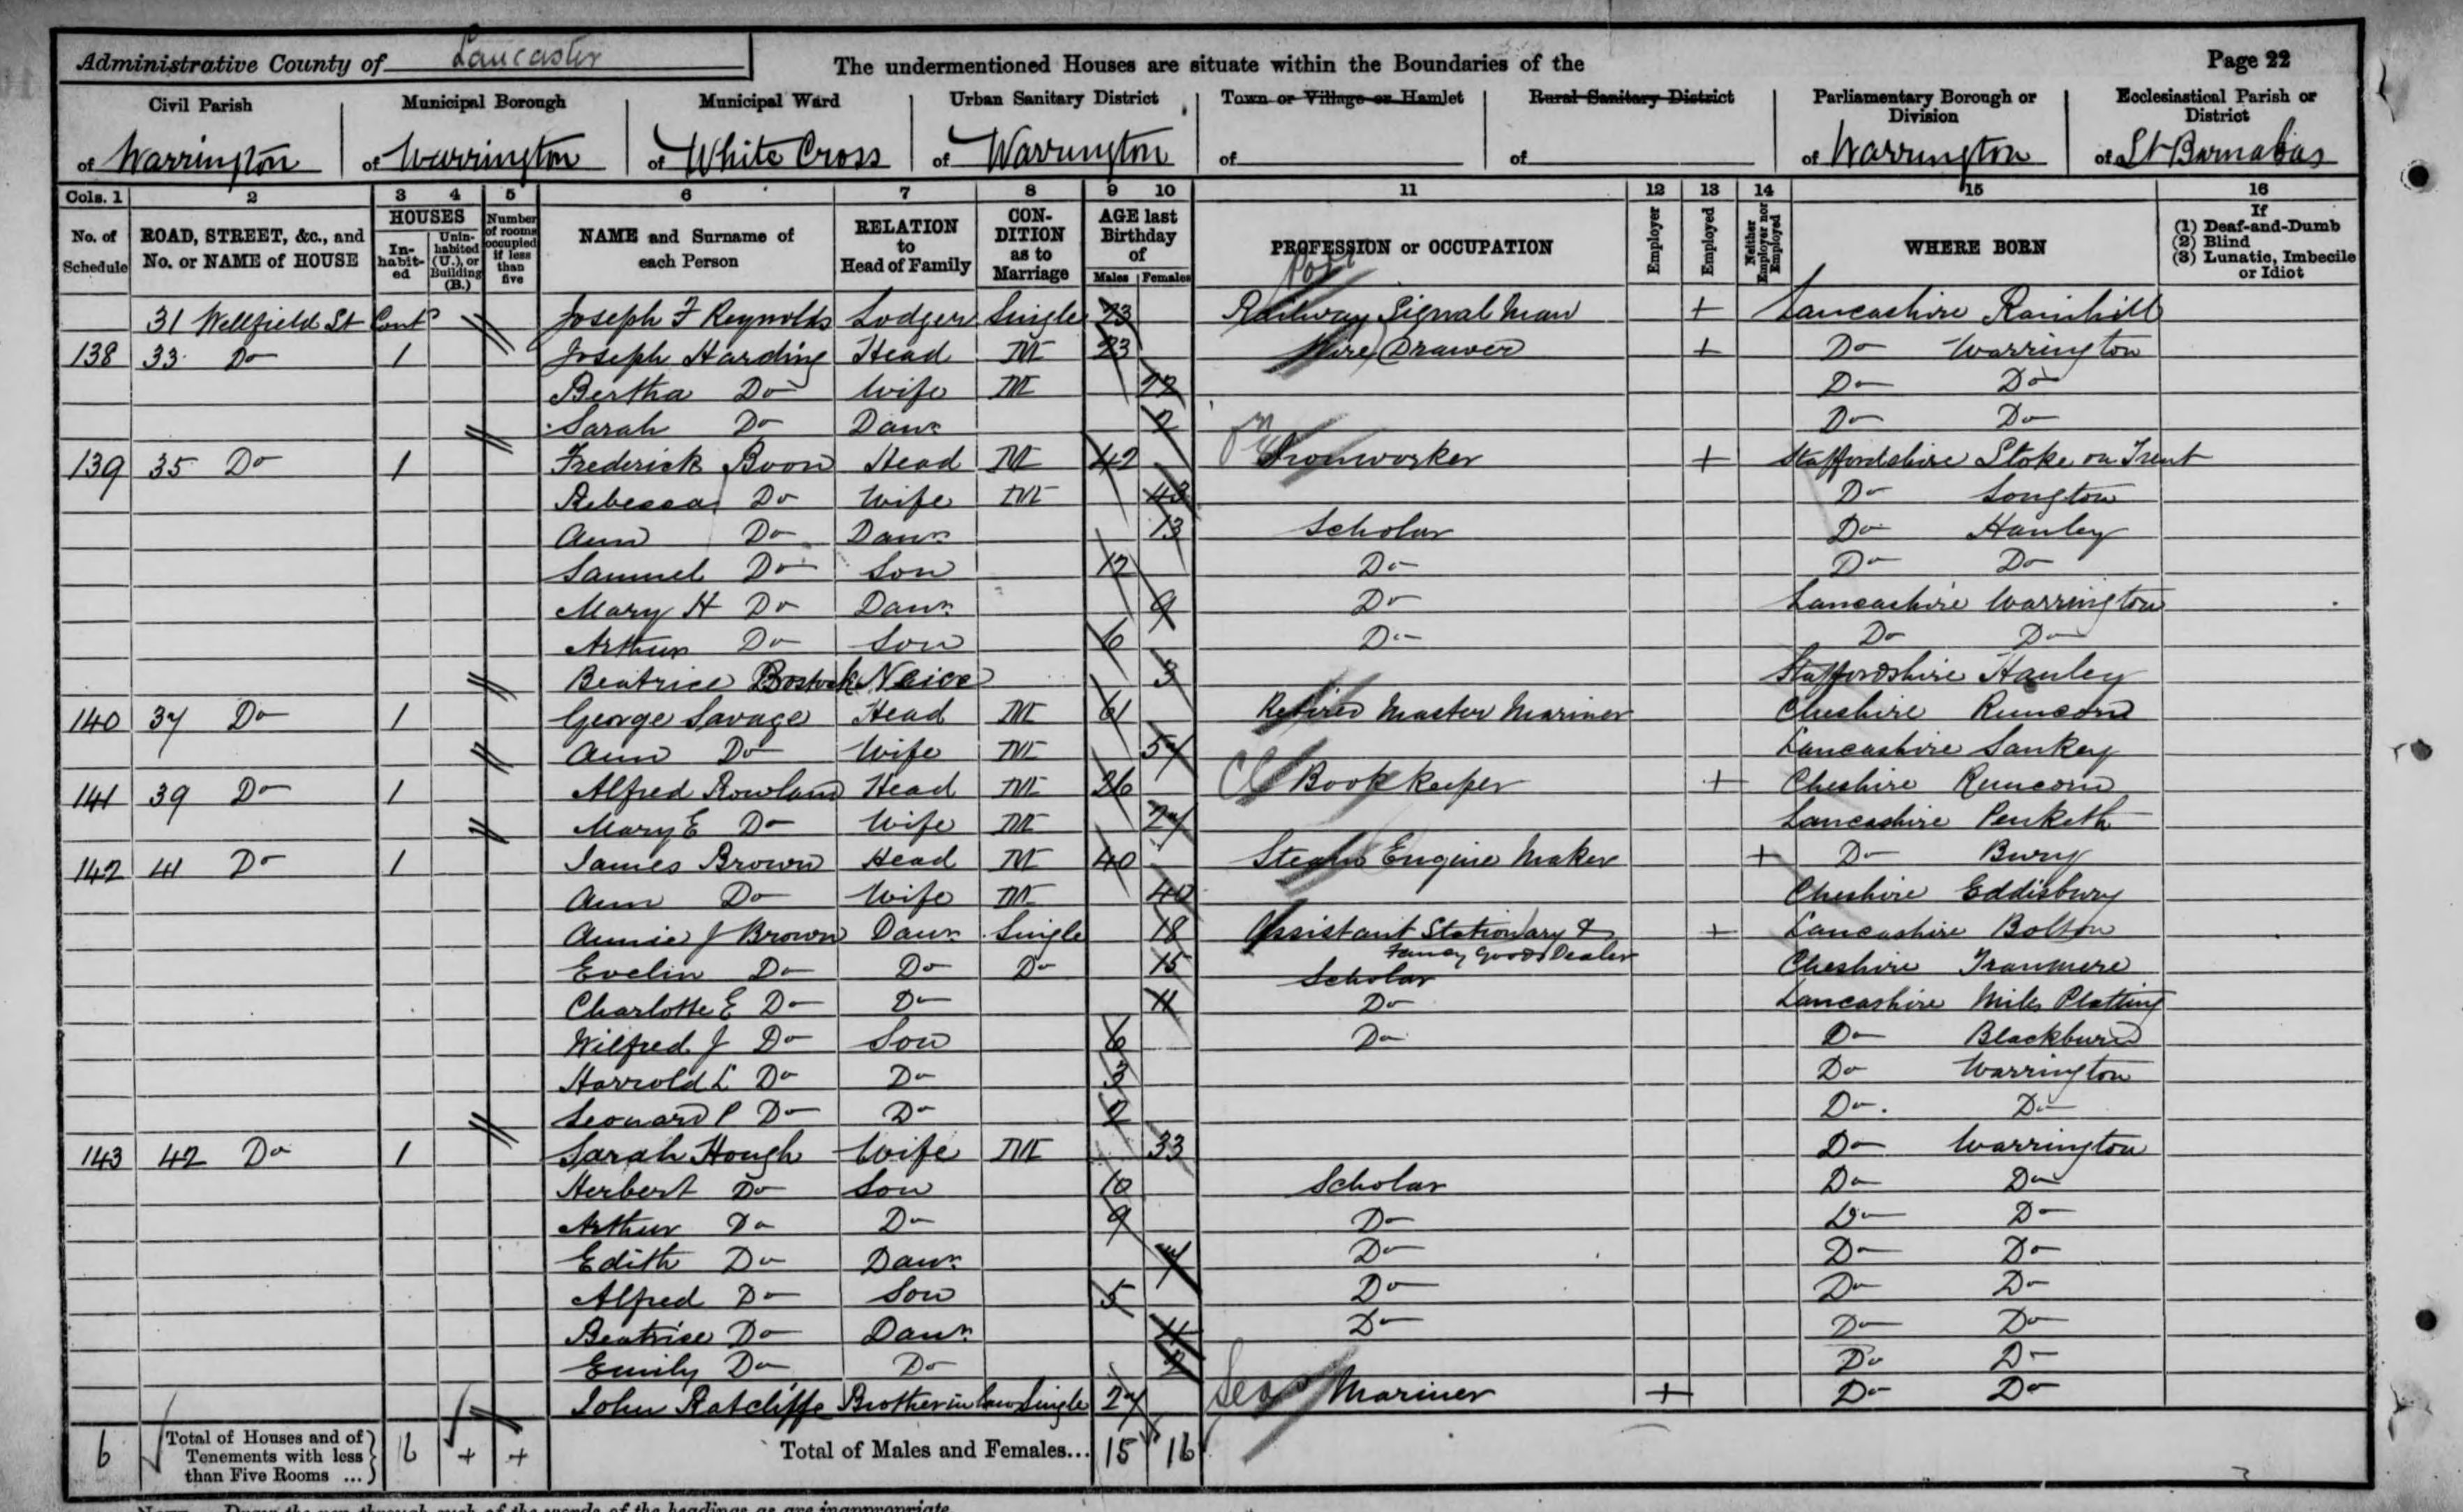 Administrative County of Lancaster
The undermentioned Houses are situate within the Boundaries of the
Page 22
Civil Parish of Warrington
Municipal Borough of Warrington
Municipal Ward of White Cross
Urban Sanitary District of Warrington
Town or Village or Hamlet of
Rural Sanitary District of
Parliamentary Borough or Division of Warrington
Ecclesiastical Parish or District of St Barnabas
Cols. 1 2 3 4 5 6 7 8 9 10 11 12 13 14 15 16
No. of Schedule
ROAD, STREET, &c., and No. or NAME of HOUSE
HOUSES
In-habit-ed
Unin-habited (U.), or Building (B.)
Number of rooms occupied if less than five
NAME and Surname of each Person
RELATION to Head of Family
CON-DITION as to Marriage
AGE last Birthday of
Males Females
PROFESSION or OCCUPATION
Employer
Employed
Neither Employer nor Employed
WHERE BORN
If (1) Deaf-and-Dumb (2) Blind (3) Lunatic, Imbecile or Idiot
31 Wellfield St Cont^d Joseph F Reynolds Lodger Single 23 Railway Signal Man + Lancashire Rainhill
138 33 Do 1 Joseph Harding Head M 23 Wire Drawer + Do Warrington
Bertha Do Wife M 22 Do Do
Sarah Do Daur 2 Do Do
139 35 Do 1 Frederick Boon Head M 42 Ironworker + Staffordshire Stoke on Trent
Rebecca Do Wife M 43 Do Longton
Ann Do Daur 13 Scholar Do Hanley
Samuel Do Son 12 Do Do Do
Mary H Do Daur 9 Do Lancashire Warrington
Arthur Do Son 6 Do Do Do
Beatrice Bostock Neice 3 Staffordshire Hanley
140 37 Do 1 George Savage Head M 61 Retired Master Mariner Cheshire Runcorn
Ann Do Wife M 57 Lancashire Sankey
141 39 Do 1 Alfred Rowland Head M 26 Book keeper + Cheshire Runcorn
Mary E Do Wife M 27 Lancashire Penketh
142 41 Do 1 James Brown Head M 40 Steam Engine Maker + Do Bury
Ann Do Wife M 40 Cheshire Eddisbury
Annie J Brown Daur Single 18 Assistant Stationary & + Lancashire Bolton
Fancy Goods Dealer
Evelin Do Do Do 15 Scholar Cheshire Tranmere
Charlotte E Do Do 11 Do Lancashire Miles Platting
Wilfred J Do Son 6 Do Do Blackburn
Harrold L Do Do 3 Do Warrington
Leonard P Do Do 2 Do Do
143 42 Do 1 Sarah Hough Wife M 33 Do Warrington
Herbert Do Son 10 Scholar Do Do
Arthur Do Do 9 Do Do Do
Edith Do Daur 7 Do Do Do
Alfred Do Son 5 Do Do Do
Beatrice Do Daur 4 Do Do Do
Emily Do Do 2 Do Do
John Ratcliffe Brother in law Single 27 Mariner + Do Do
6 Total of Houses and of Tenements with less than Five Rooms ... 6 + + Total of Males and Females... 15 16